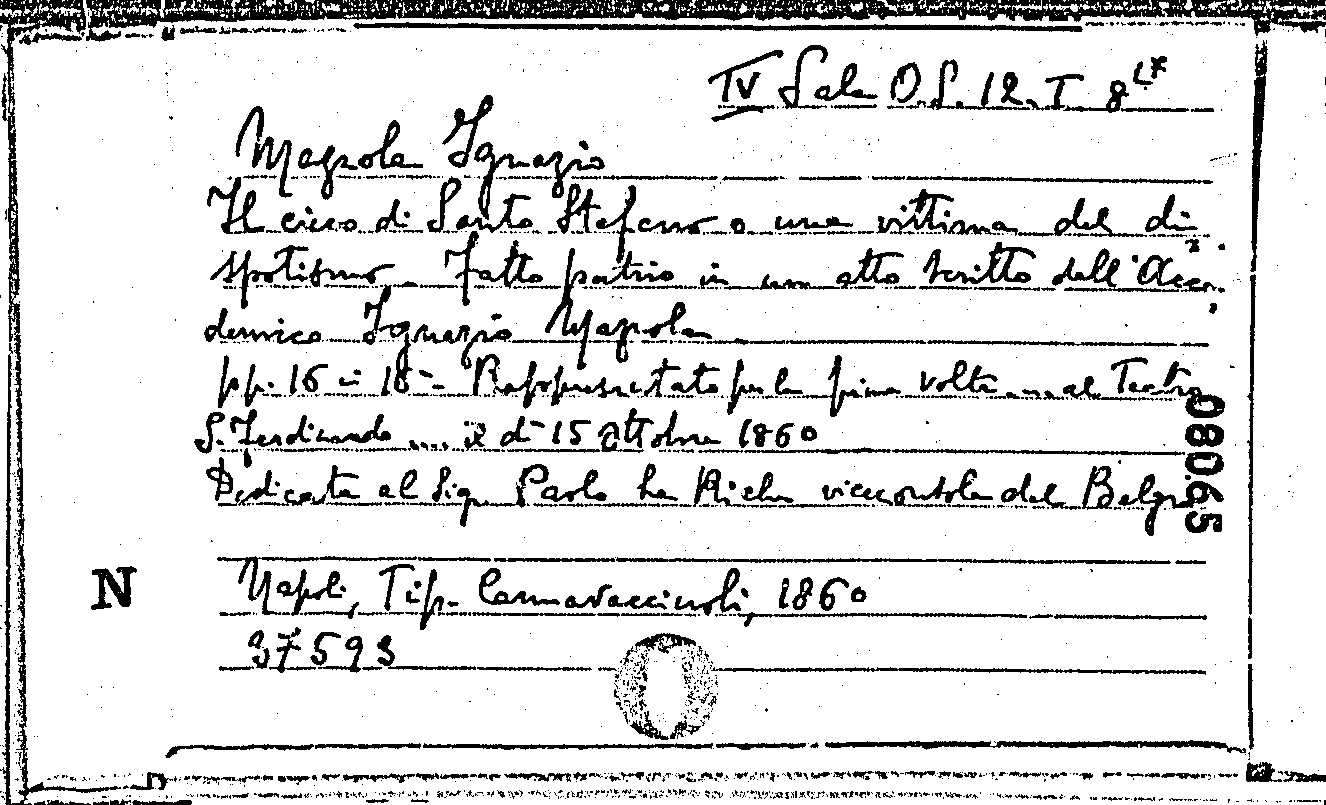 IV Sala O.S. 12. T 8 17
Magnola Ignazio
Il cieco di Santo Stefano o una vittima del di
spotismo. Fatto patrio in un atto scritto dall'Acca
demico Ignazio
pp. 16 in 16°- Rappresentato per la prima volta .... al Teatro
S. Ferdinando .... il dì 15 Ottobre 1860
Dedicata al Sig. Paolo viceconsole del Belgio
08065
N
Napoli, Tip. Cannavacciuoli, 1860
37593